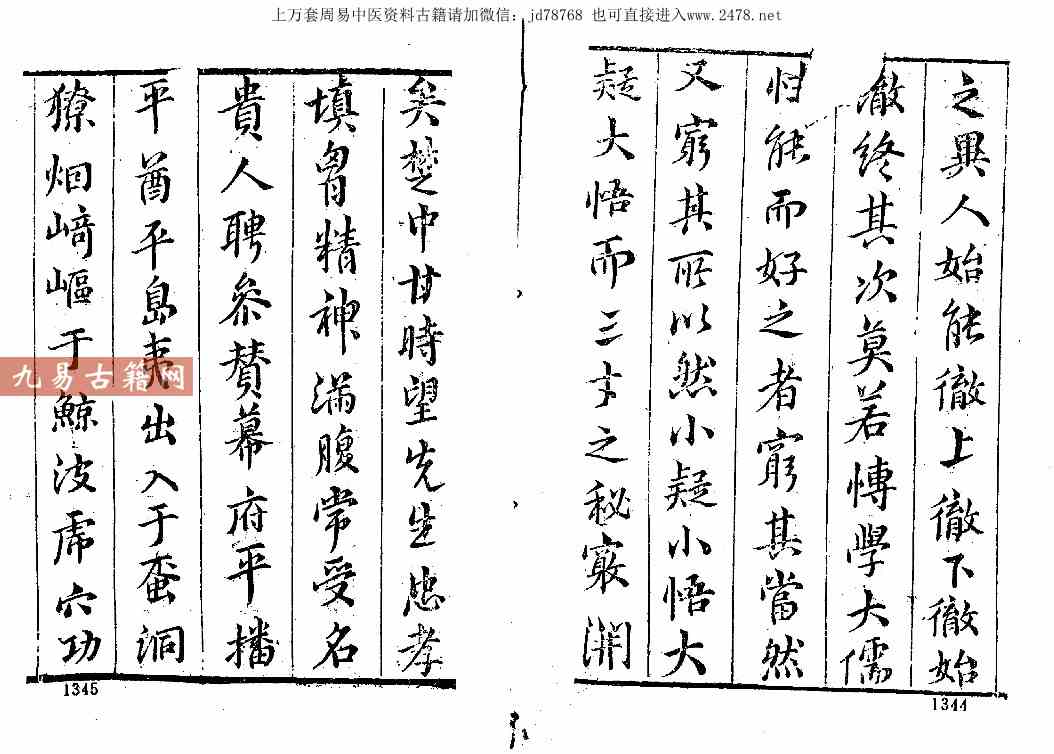 上万套周易中医资料古籍请加微信：jd78768 也可直接进入www.2478.net
之異人始能徹上徹下徹始
徹終其次莫若博學大儒
归能而好之者窮其當然
又窮其所以然小疑小悟大
疑大悟而三才之秘竅開
1344
矣楚中甘時望先生忠孝
填胷精神滿腹常受名
貴人聘叅賛幕府平播
平酋平島夷出入于蛮洞
獠烟﨑嶇于鯨波虎穴功
1345
九易古籍网